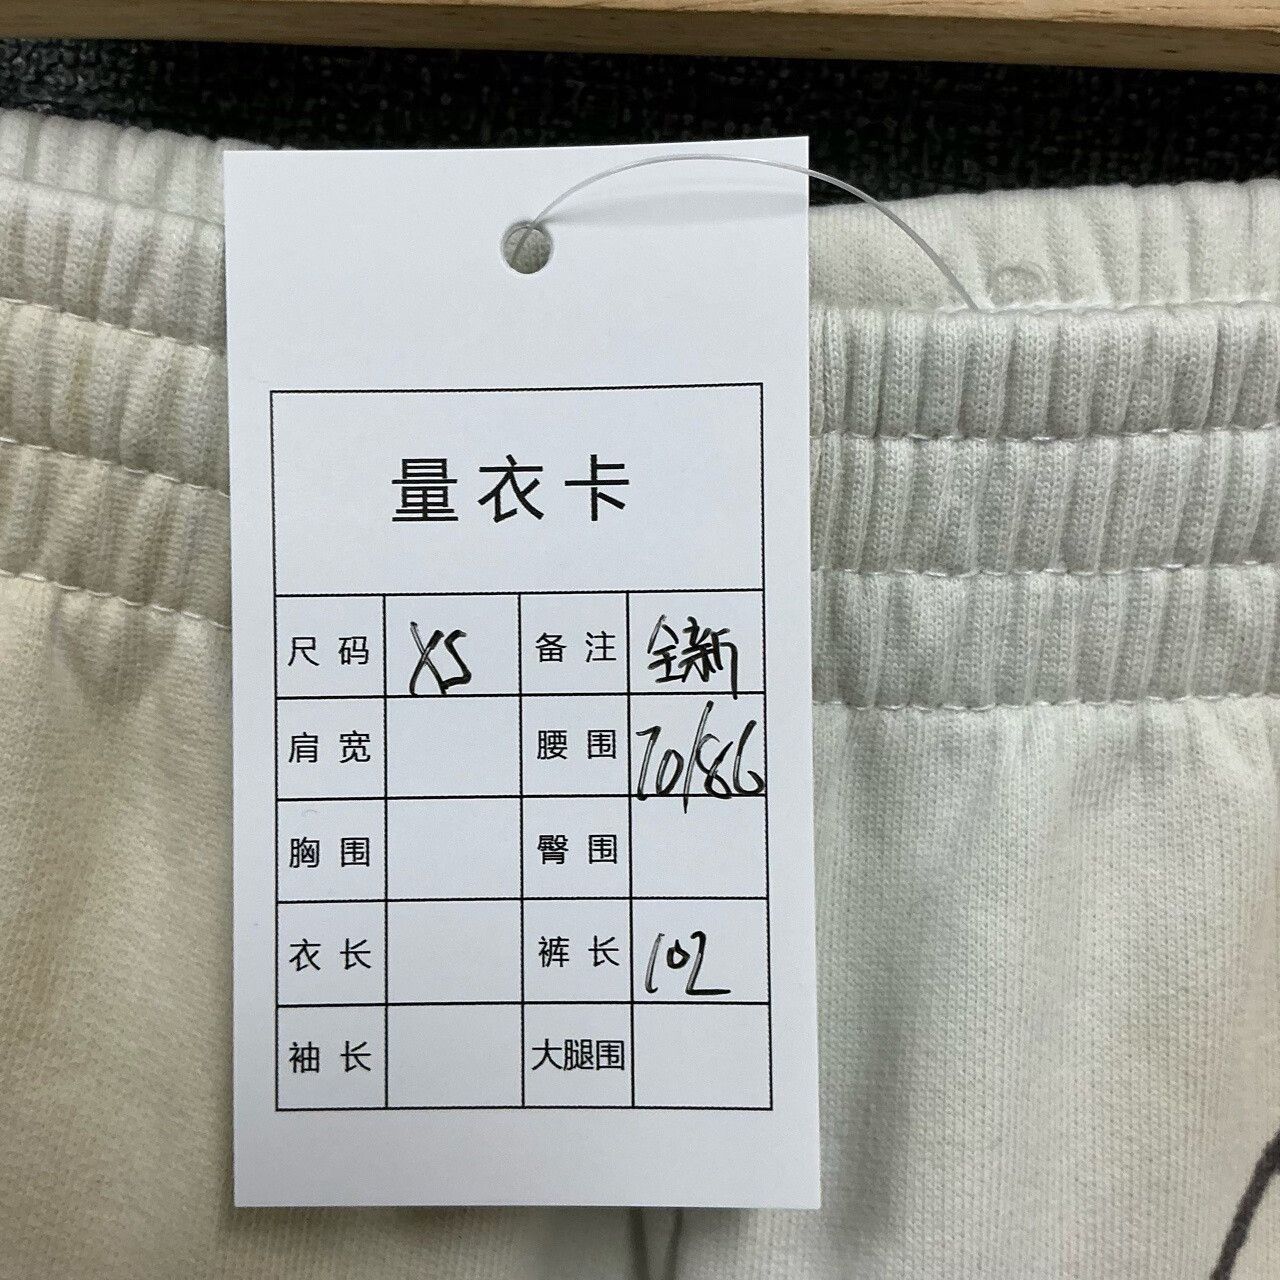 量衣卡
尺码 XS 备注 全新
肩宽 腰围 70/86
胸围 臀围
衣长 裤长 102
袖长 大腿围